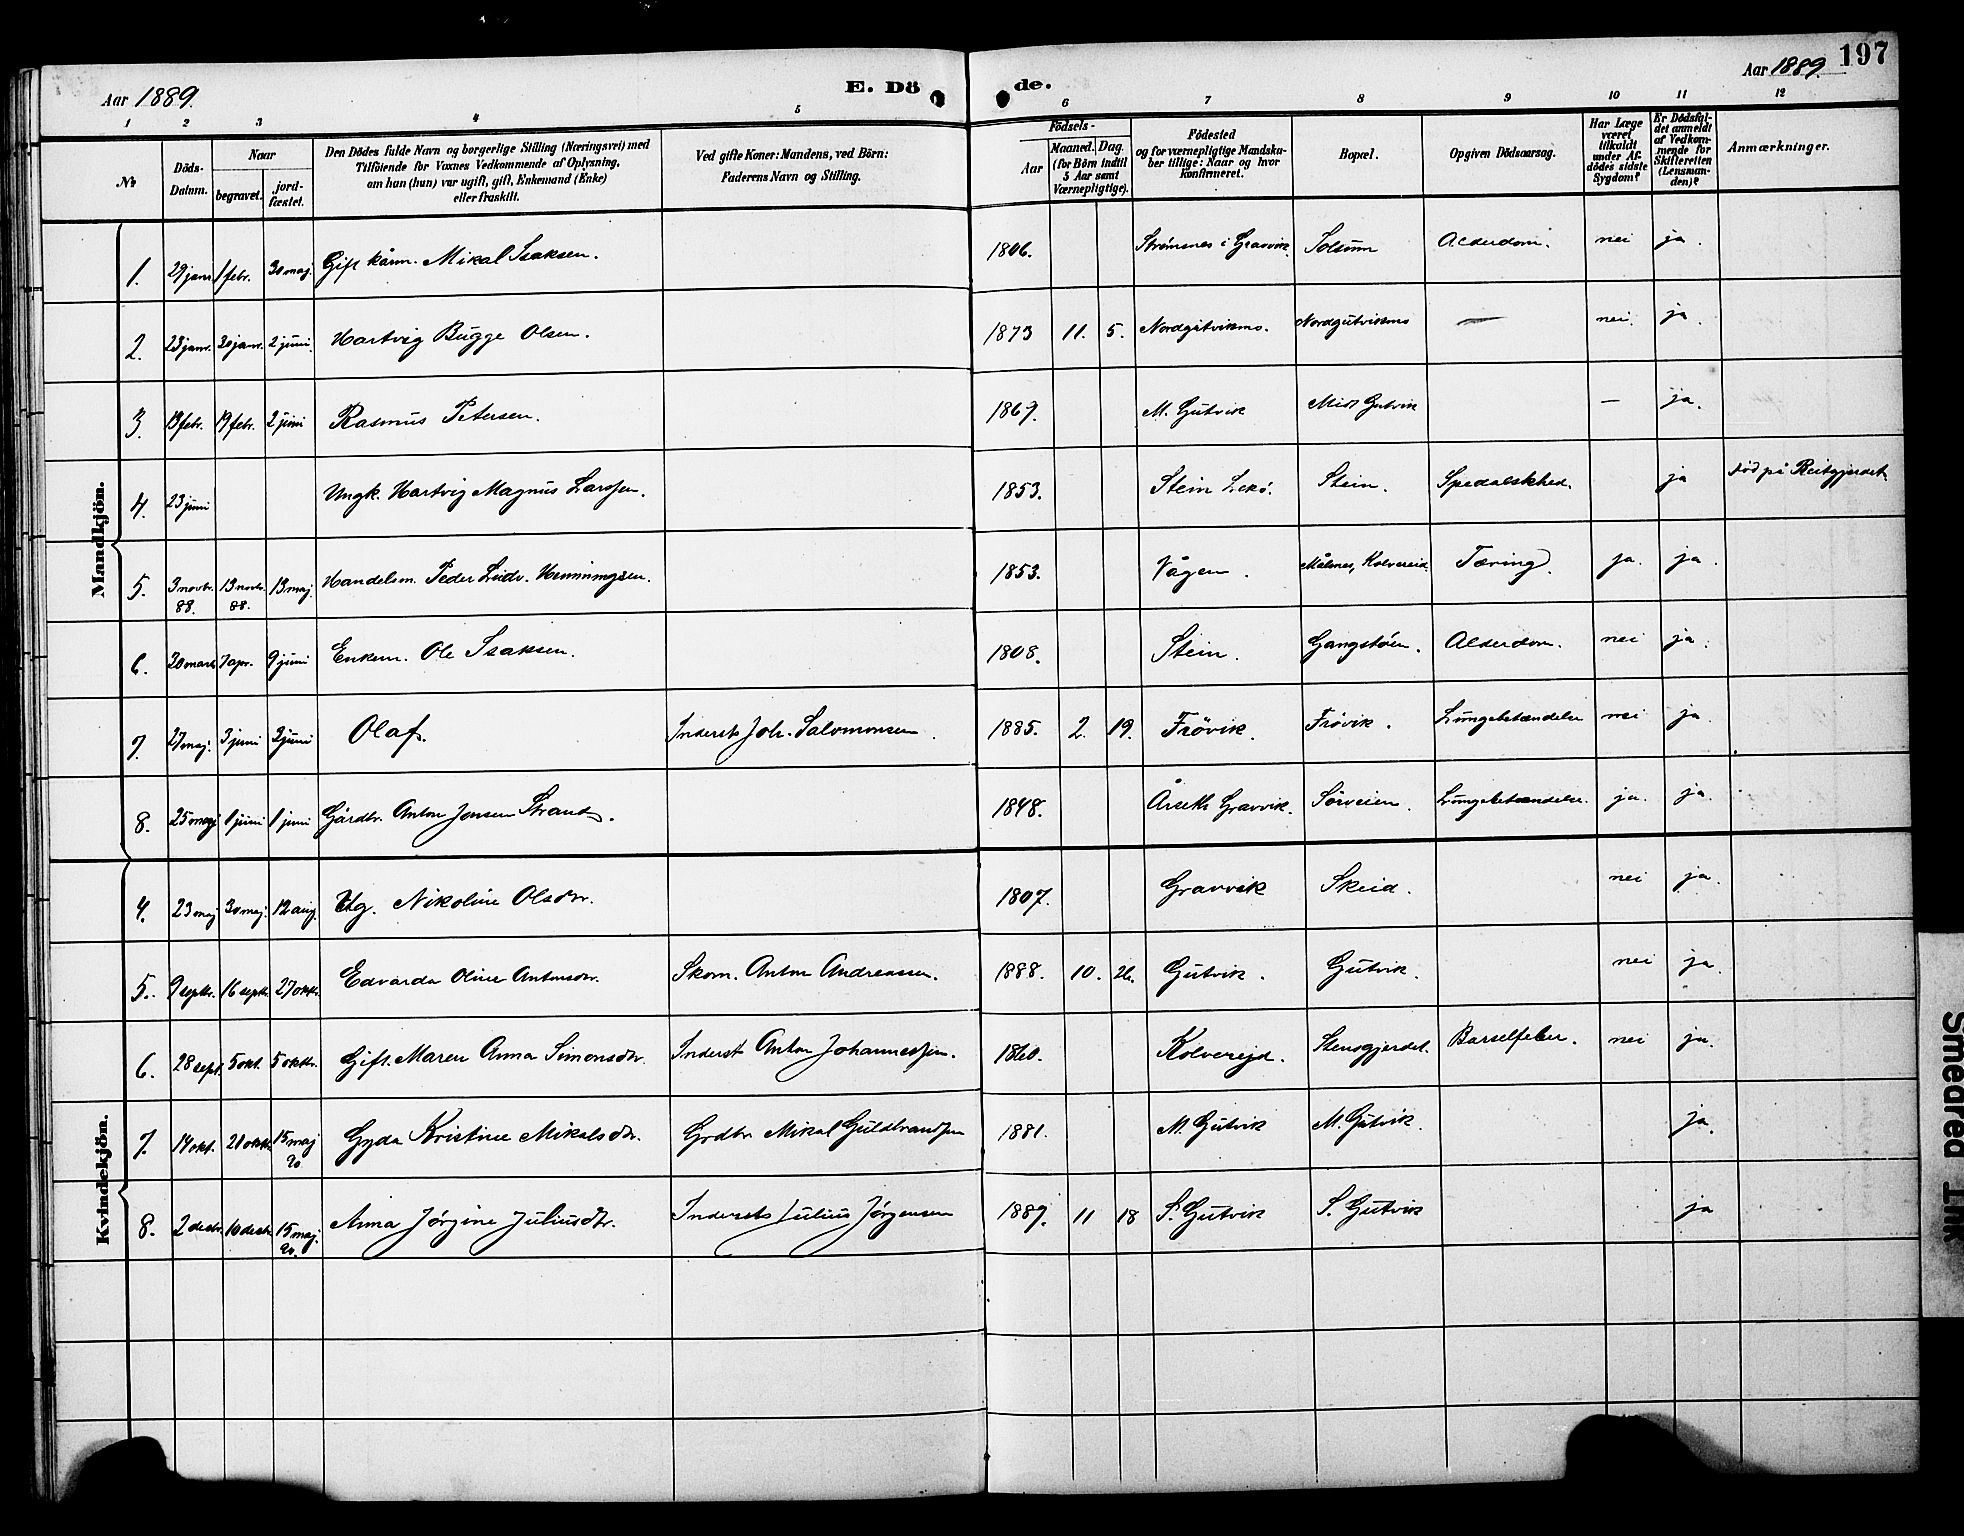 197
Aar 1889.
E. Dö
de.
Aar 1889.
1 2 3 4 5 6 7 8 9 10 11 12
No
Döds-Datum.
Naar
begravet. jord-fæstet.
Den Dödes fulde Navn og borgerlige Stilling (Næringsvei) med
Tilföiende for Voxnes Vedkommende af Oplysning,
om han (hun) var ugift, gift, Enkemand (Enke)
eller fraskilt.
Ved gifte Koner: Mandens, ved Börn:
Faderens Navn og Stilling.
Födsels-
Aar Maaned. Dag.
(for Börn indtil
5 Aar samt
Værnepligtige).
Födested
og for værnepligtige Mandska-
ber tillige: Naar og hvor
Konfirmeret.
Bopæl.
Opgiven Dödsaarsag.
Har Læge
været
tilkaldt
under Af-
dödes sidste
Sygdom?
Er Dödsfal-
det anmeldt
af Vedkom-
mende for
Skifteretten
(Lensman-
den)?
Anmærkninger.
Mandkjön.
1. 29 janr. 1 febr. 30 maj. Gift kårm. Mikal Isaksen. 1806. Strømsnes i Gravvik. Solsum Alderdom. nei ja.
2. 23 janr. 30 janr. 2 juni. Hartvig Bugge Olsen. 1873 11. 5. Nordgutviksns. Nordgutviksns — nei. ja.
3. 13 febr. 19 febr. 2 juni Rasmus Petersen. 1869. M. Gutvik Midt Gutvik — ja.
4. 23 juni Ungk. Hartvig Magnus Larssen. 1853. Stein Lekö. Stein. Spedalskhed. ja død på Reitgjerdet
5. 3 novbr. 88. 13 novbr. 88. 13 maj. Handelsm. Peder Ludv. Henningsen. 1853. Vågen. Målnes, Kolvereid. Tæring. ja. ja.
6. 30 marts 7 apr. 9 juni Enkem. Ole Isaksen. 1808. Stein. Gangstöen. Alderdom. nei ja.
7. 27 maj. 3 juni 3 juni Olaf. Inderst Joh. Salomonsen. 1885. 2. 19. Frövik. Frövik. Lungebetændelse nei ja.
8. 25 maj 1 juni 1 juni Gårdbr. Anton Jonsen Strand. 1848. Årseth Gravvik. Sörveien. Lungebetændelse. ja. ja.
Kvindekjön.
4. 23 maj 30 maj. 12 aug. Ug. Nikoline Olsdtr. 1807. Gravvik Skeid. nei ja.
5. 9 septbr. 16 septbr. 27 oktbr. Edvarda Oline Antonsdtr. Skom. Anton Andreassen. 1888. 10. 26. Gutvik. Gutvik. nei ja.
6. 28 sept. 5 okt. 5 oktbr. Gift. Maren Anna Simonsdtr. Inderst Anton Johannessen. 1860. Kolverejd. Stensgjerdet. Barselfeber. nei ja.
7. 14 okt. 21 oktbr. 15 maj 90 Gyda Kristine Mikalsdtr. Grdbr. Mikal Guldbrandsen 1881. M. Gutvik M. Gutvik. ja.
8. 2 decbr. 10 decbr. 15 maj. 90. Anna Jörgine Juliusdtr. Inderst Julius Jörgensen 1889. 11 18 S. Gutvik S. Gutvik ja
Smeared Ink